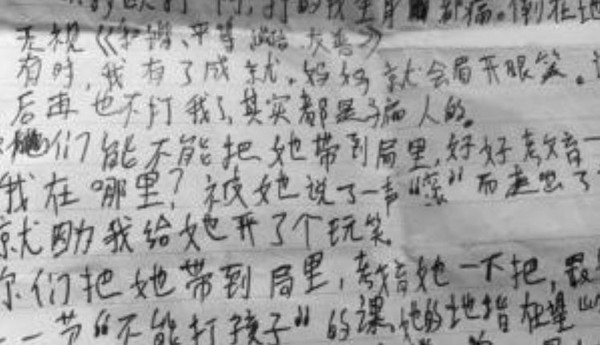 的我全身都痛。倒在地
无视《和谐、平等 团结 友善》
有时,我有了成就。妈妈就会眉开眼笑。
后再也不打我了,其实都是骗人的。
他们能不能把她带到局里,好好教育一
我在哪里?被她说了一声“滚”而走出了
就因为我给她开了个玩笑
你们把她带到局里,教育她一下把,最
一节“不能打孩子”的课,她的地指在望